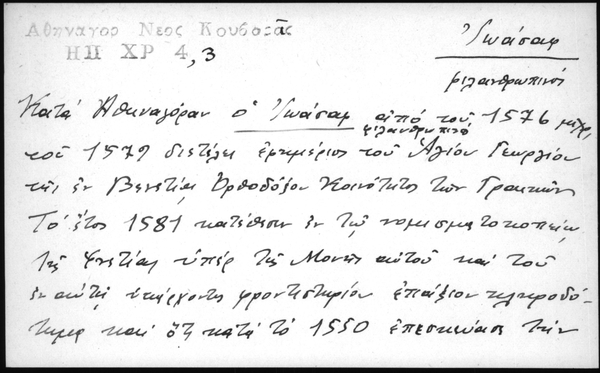 Αθηναγορ Νεος Κουβαρᾶς
ΗΠ ΧΡ 4, 3
Ἰωάσαφ
φιλανθρωπινός
Κατά Ἀθηναγόραν ὁ Ἰωάσαφ ἀπό τοῦ 1576 μέχρι
φιλανθρωπινός
τοῦ 1579 διετέλει ἐφημέριος τοῦ Ἁγίου Γεωργίου
τῆς ἐν Βενετίᾳ Ὀρθοδόξου Κοινότητος τῶν Γραικῶν
Τό ἔτος 1581 κατέθεσεν ἐν τῷ νομισματοκοπείῳ
τῆς Βενετίας ὑπέρ τῆς Μονῆς αὐτοῦ καί τοῦ
ἐν αὐτῇ ὑπάρχοντος φροντιστηρίου ἐπάξιον κληροδό-
τημα καί ὅτι κατά τό 1550 ἐπεσκεύασε τήν